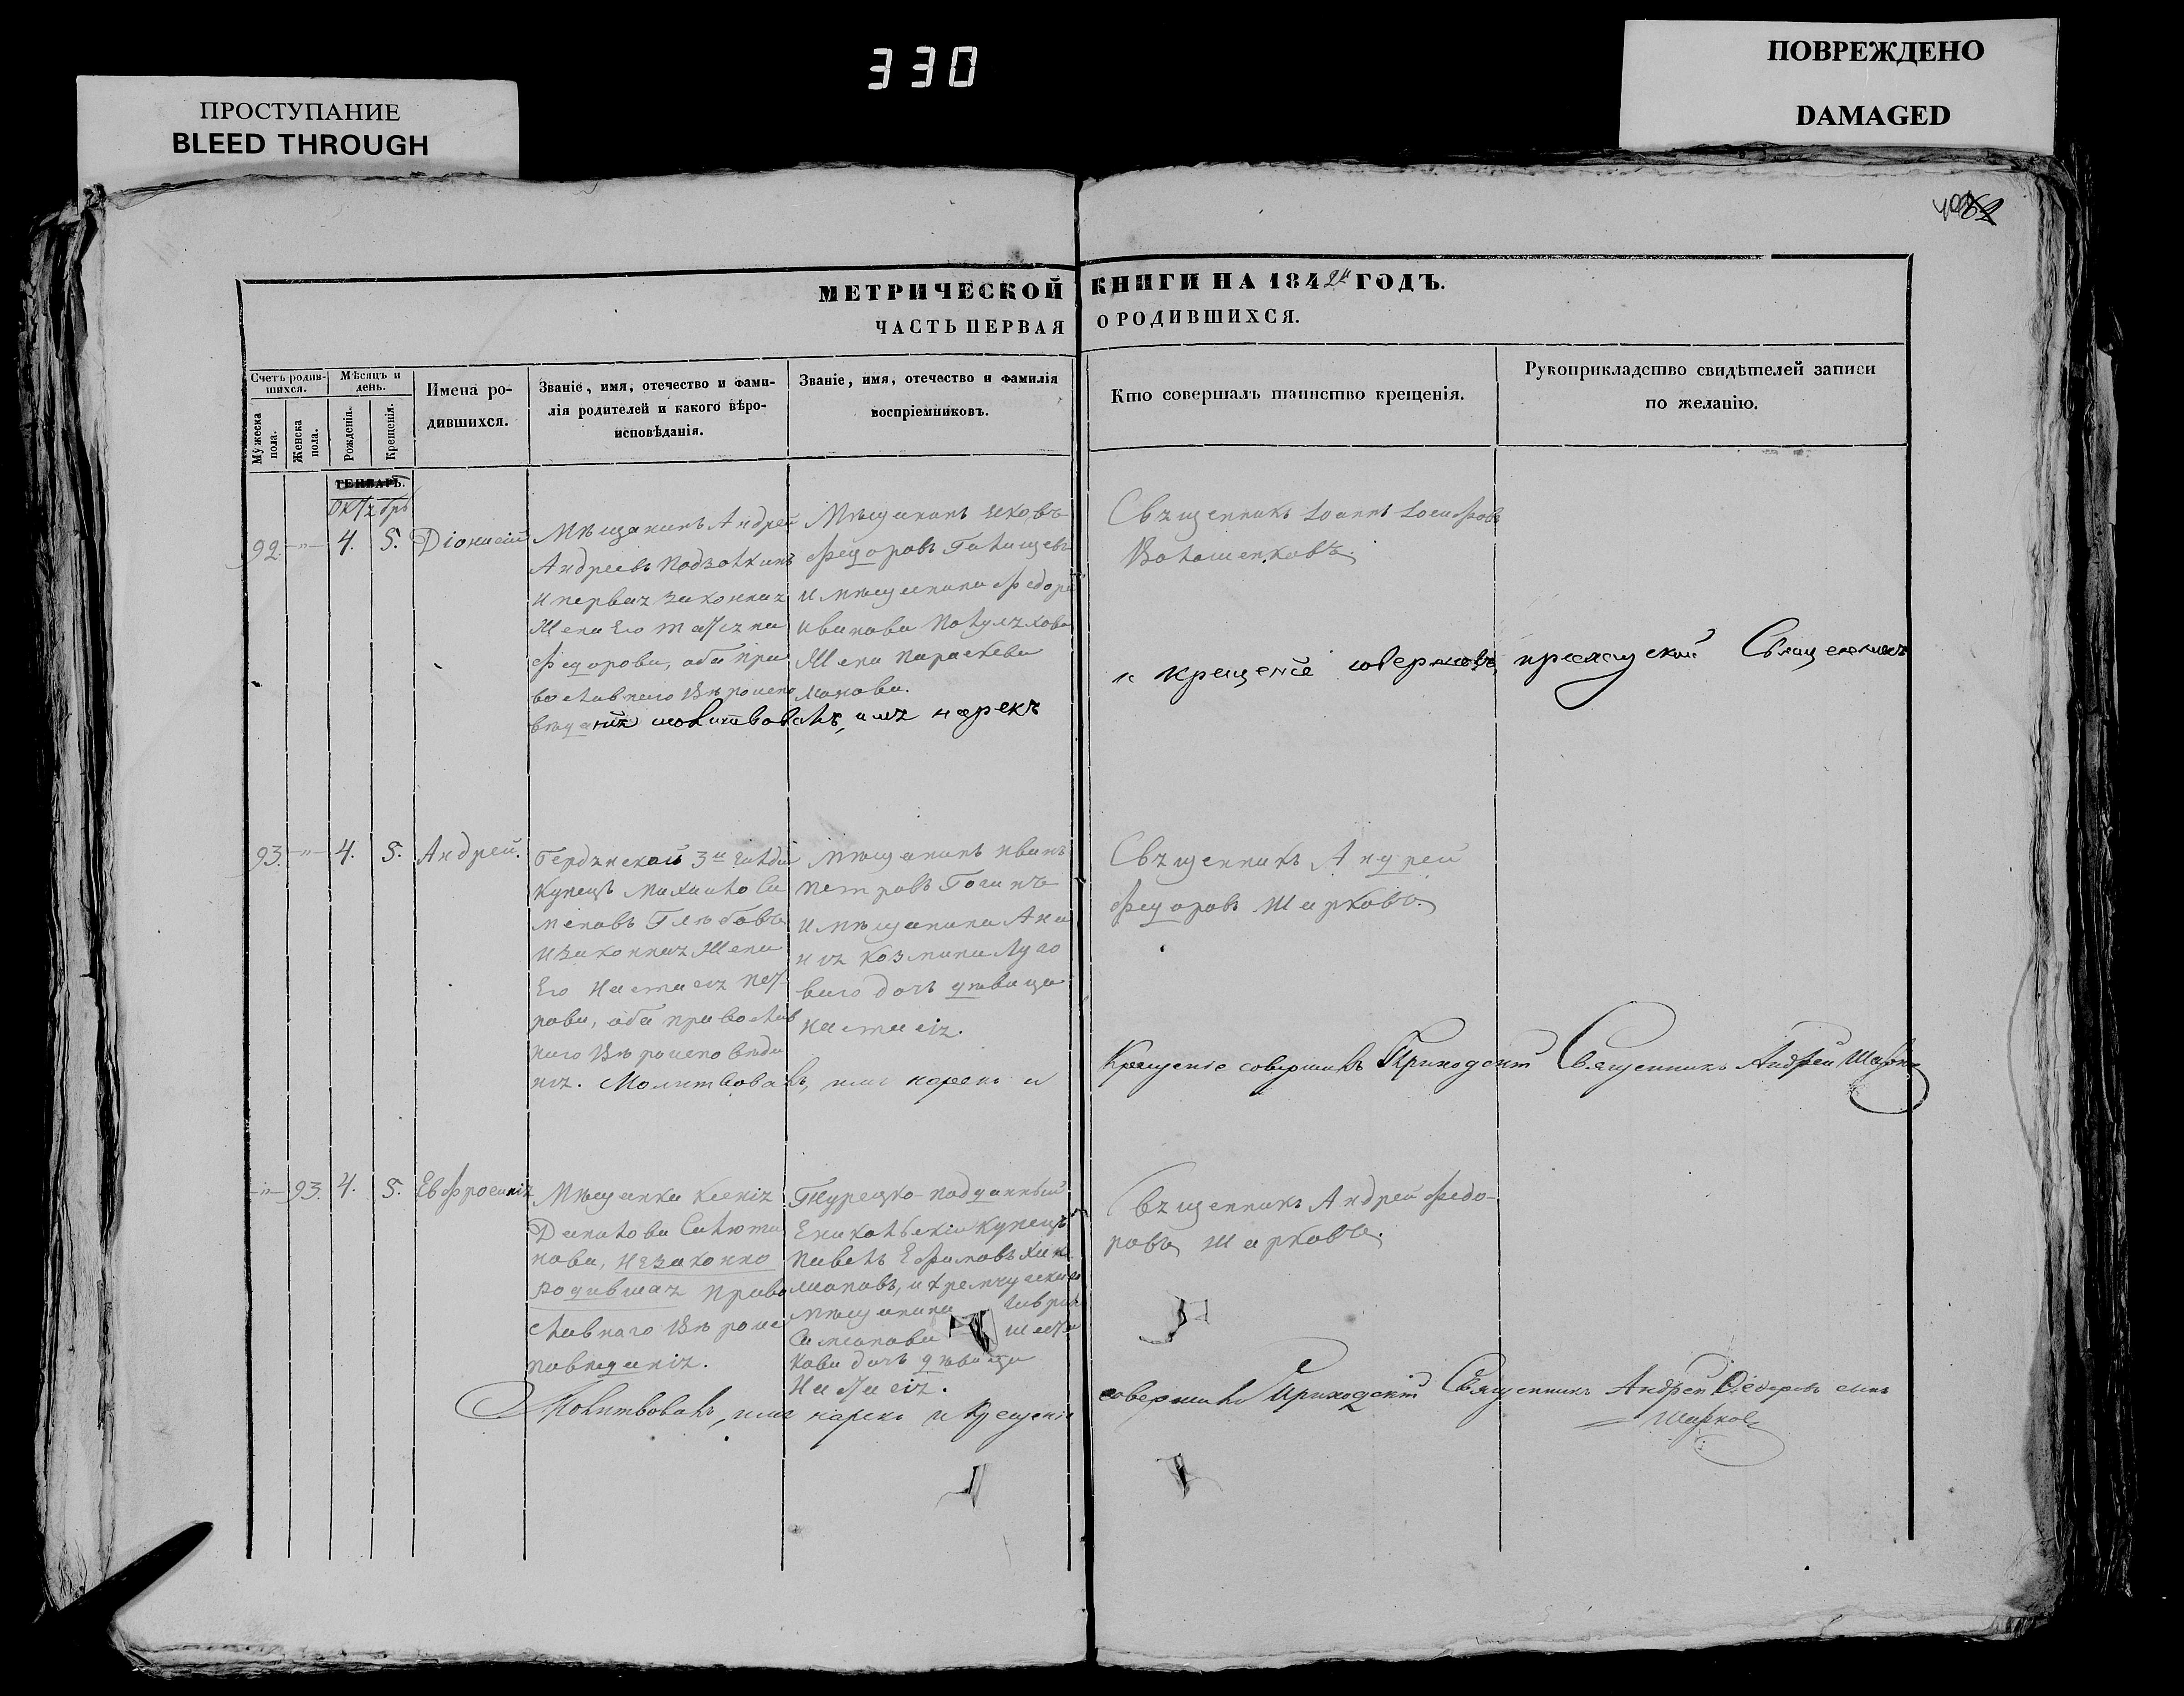 330
ПРОСТУПАНИЕ
BLEED THROUGH
ПОВРЕЖДЕНО
DAMAGED
МЕТРИЧЕСКОЙ КНИГИ НА 1842й ГОДЪ.
ЧАСТЬ ПЕРВАЯ О РОДИВШИХСЯ.
Счетъ родив-
шихся.
Мужеска
пола.
Женска
пола.
Мѣсяцъ и
день.
Рожденія.
Крещенія.
Имена ро-
дившихся.
Званіе, имя, отечество и фами-
лія родителей и какого вѣро-
исповѣданія.
Званіе, имя, отечество и фамилія
воспріемниковъ.
Кто совершалъ таинство крещенія.
Рукоприкладство свидѣтелей записи
по желанію.
ГЕНВАРЬ.
Октябрь
92. -"- 4. 5. Діонисій
Мѣщанинъ Андрей
Андреевъ Подзолкинъ
и первая законная
Жена Его Татіана
Федорова, оба пра
вославнаго Вѣроиспо
вѣданія молитвовалъ, имя нарекъ
Мѣщанинъ Яковъ
Федоровъ
и мѣщанина Федора
Иванова
Жена Параскева
Священникъ Іоаннъ Іосифовъ
и крещеніе совершалъ Священникъ
93. -"- 4. 5. Андрей.
Бердянской 3й гильдіи
Купецъ Михаило Си
меновъ Глѣбовъ
и Законная Жена
Его Настасія Пет
рова, оба православ
наго Вѣроисповѣда
нія. Молитвовалъ, имя нарекъ и
Мѣщанинъ Иванъ
Петровъ
и мѣщанина Ана
нія Козмина Луго
ваго дочь дѣвица
Настасія.
Священникъ Андрей
Федоровъ Шарковъ
Крещеніе совершилъ Приходскій Священникъ Андрей Шарковъ
-"- 93. 4. 5. Евфросинія
Мѣщанка Ксенія
Данилова Силюти
нова, незаконно
родившая право
славнаго Вѣроис
повѣданія.
Турецко-подданный
Еникольскій Купецъ
Павелъ Ефимовъ
мѣщанина
Симонова
кова дочь дѣвица
Настасія.
Священникъ Андрей Федо-
ровъ Шарковъ.
Молитвовалъ, имя нарекъ и крещеніе совершилъ Приходскій Священникъ Андрей Федоровъ сынъ
Шарковъ